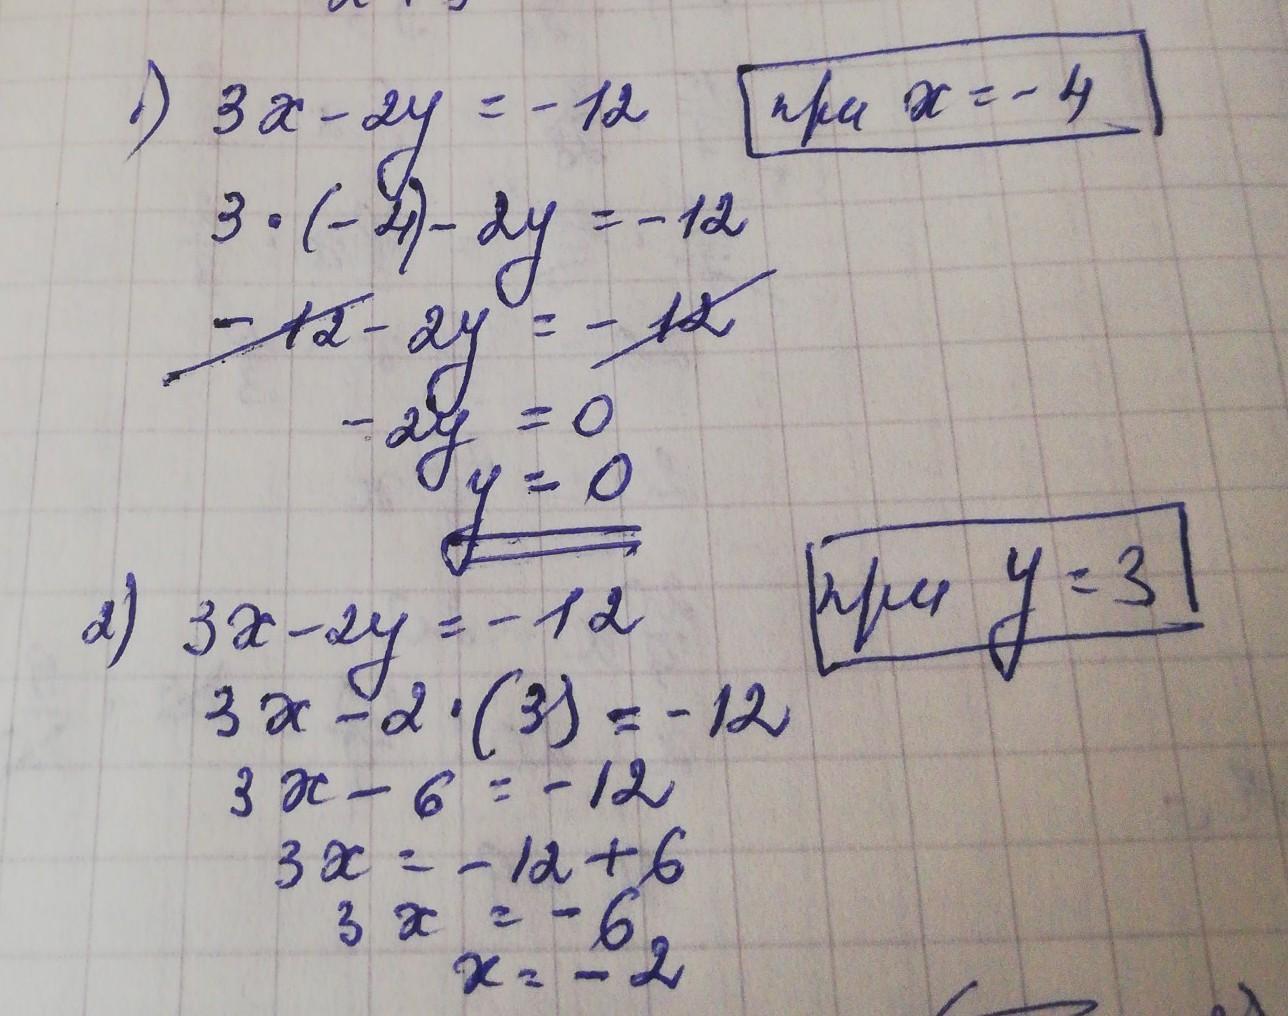 1) 3x - 2y = -12 при x = -4
3 · (-4) - 2y = -12
-12 - 2y = -12
-2y = 0
y = 0
2) 3x - 2y = -12 при y = 3
3x - 2 · (3) = -12
3x - 6 = -12
3x = -12 + 6
3x = -6
x = -2